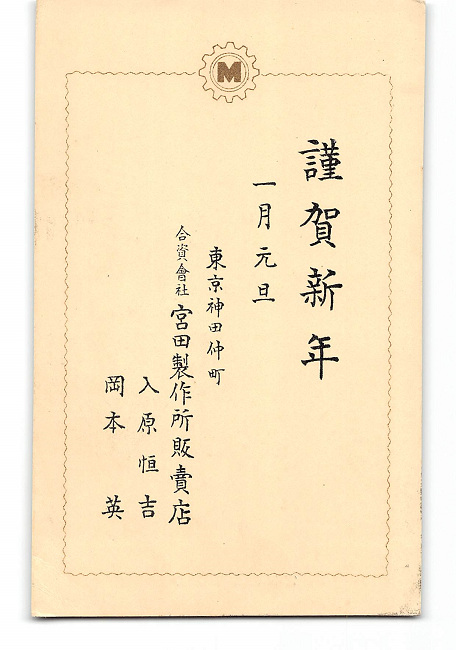 M
謹賀新年
一月元旦
東京神田仲町
合資會社 宮田製作所販賣店
入原恒吉
岡本英